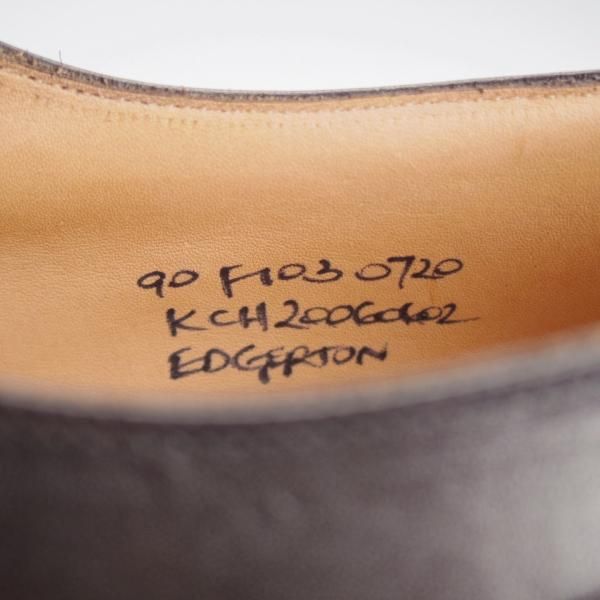 90 F 103 0720
KCH20060602
EDGERTON